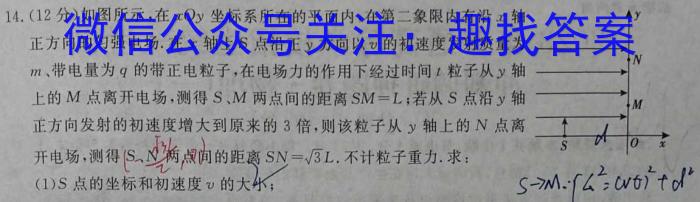 14.(12分)如图所示,在xOy坐标系所在的平面内,在第二象限内有沿x轴
正方向的匀强电场.在x轴上S点沿正y方向以v的初速度
微信公众号关注:趣找答案
m、带电量为q的带正电粒子,在电场力的作用下经过时间t粒子从y轴
上的M点离开电场,测得S、M两点间的距离SM=L;若从S点沿y轴
正方向发射的初速度增大到原来的3倍,则该粒子从y轴上的N点离
开电场,测得S、N两点间的距离SN=√3L.不计粒子重力.求:
(1)S点的坐标和初速度v的大小;
y
N
M
S
d
O
x
S→M:{L²=(vt)²+d²